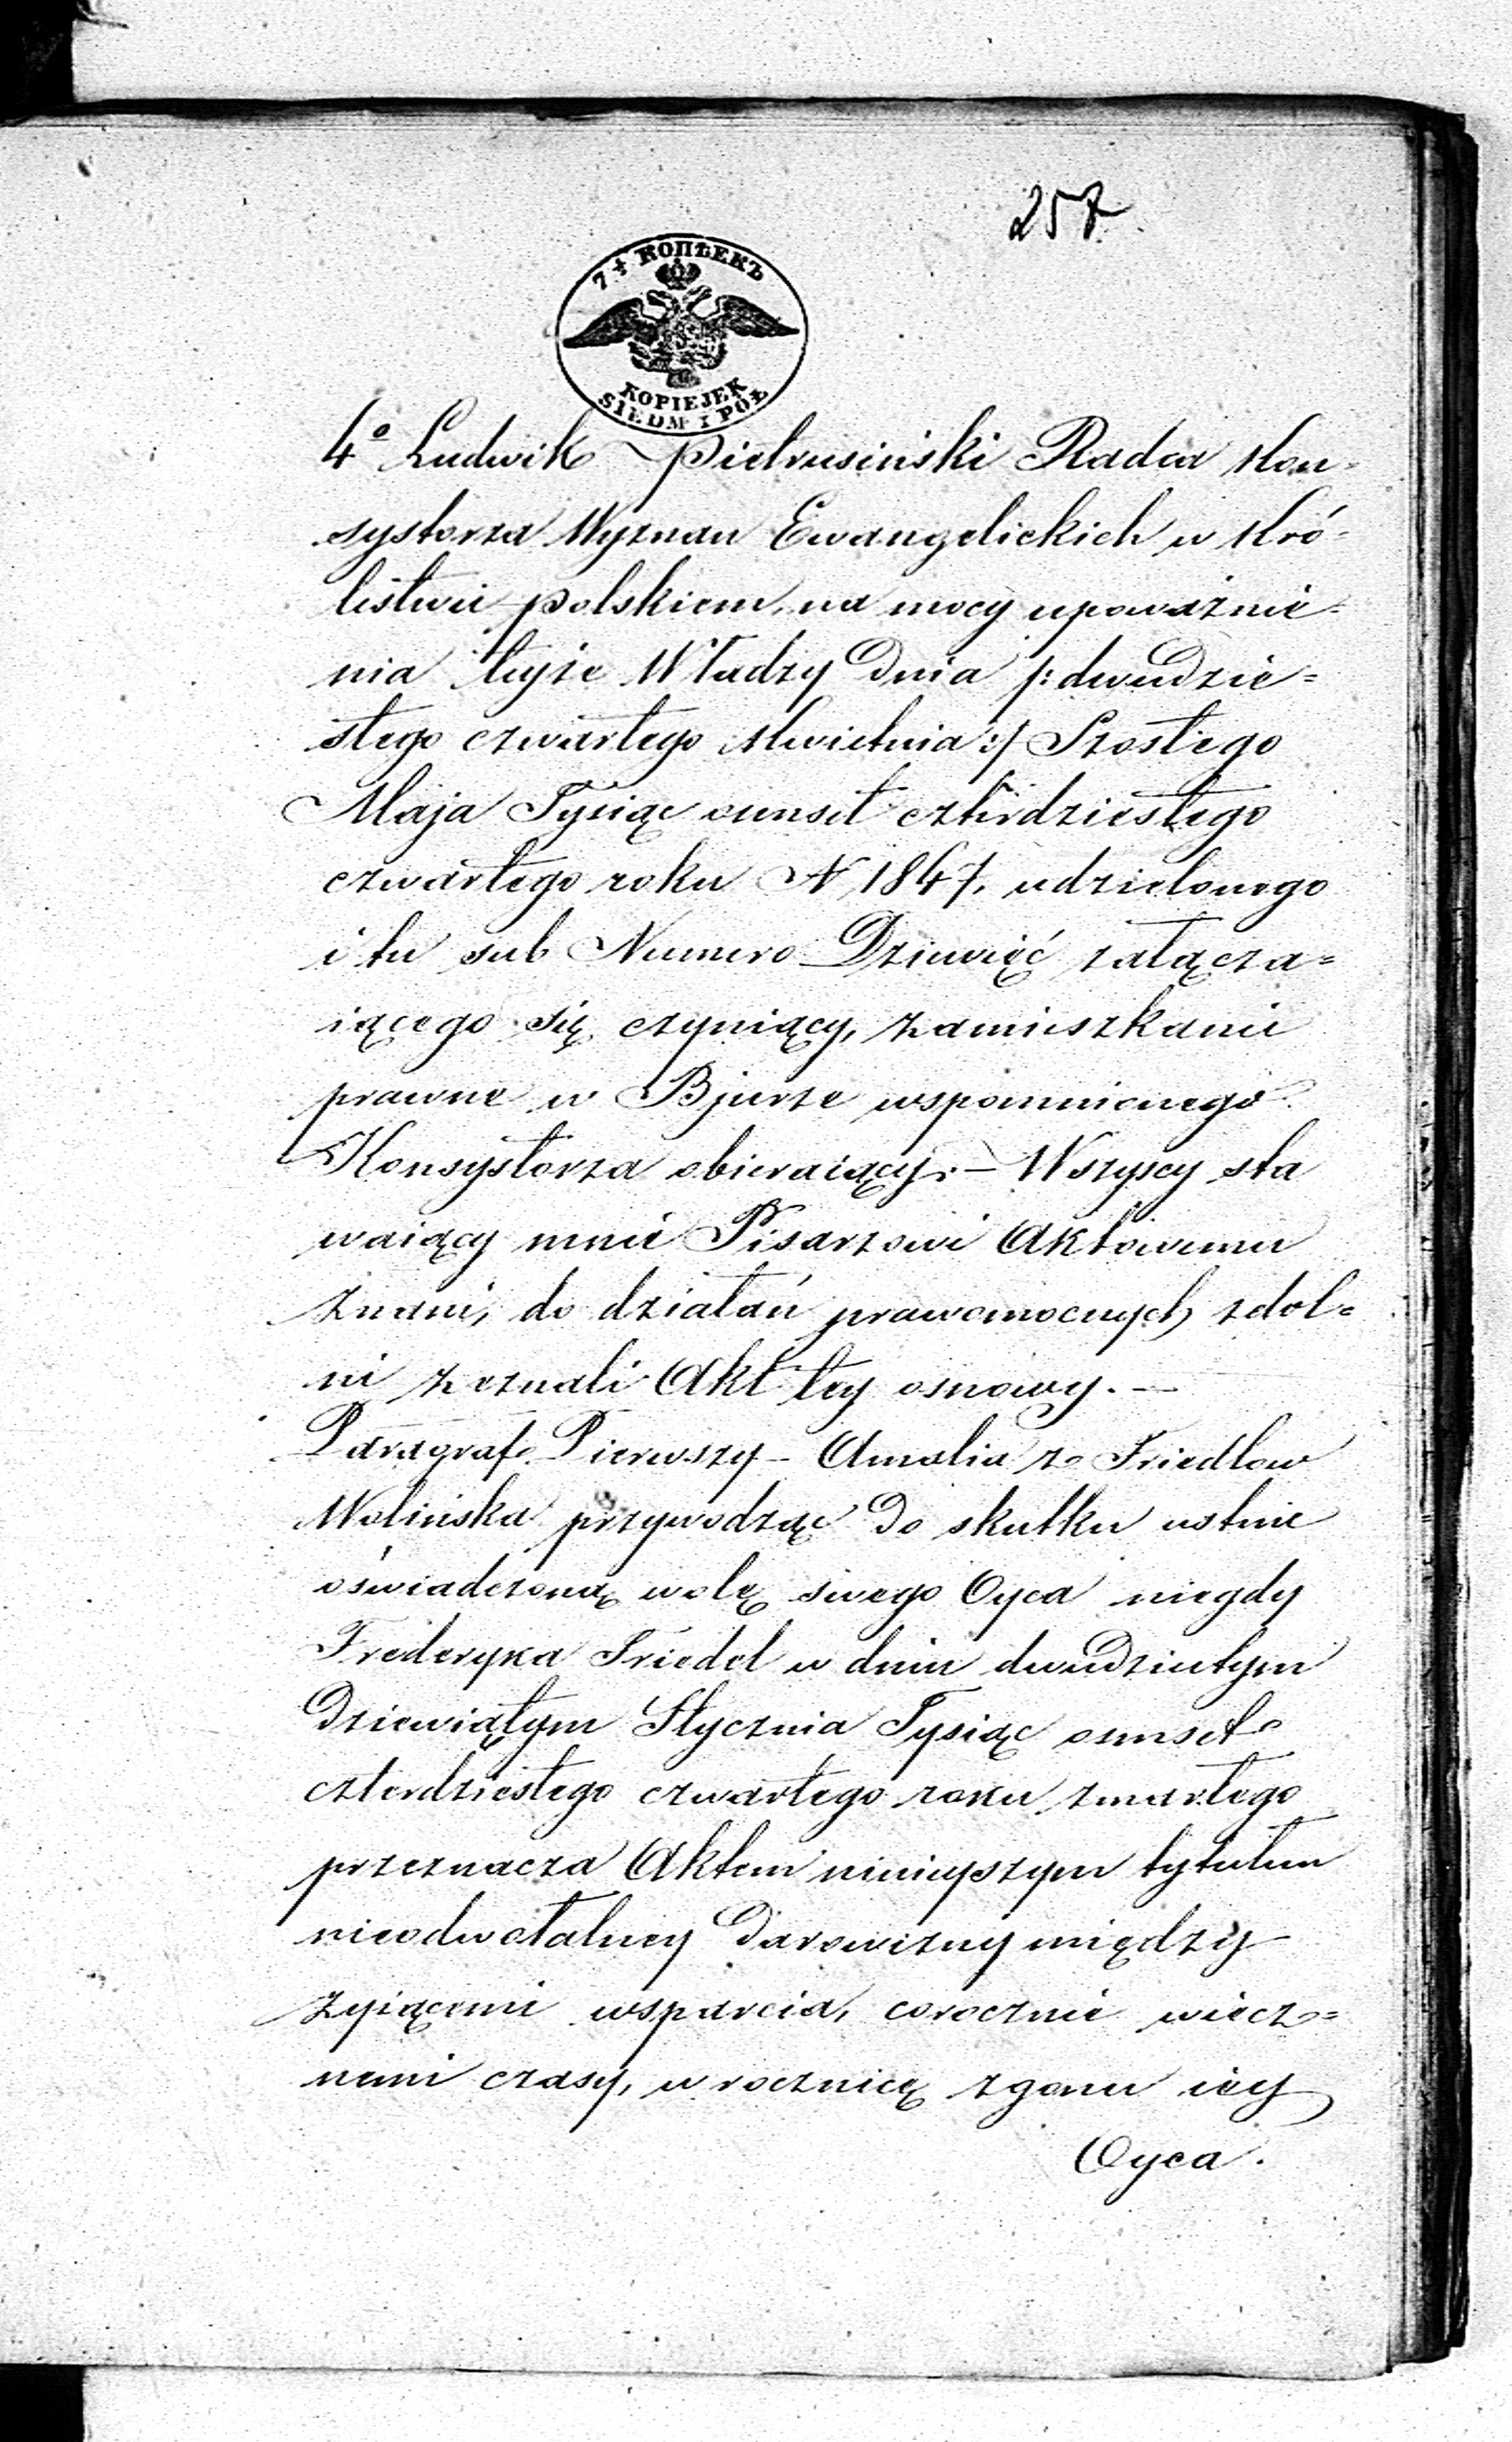 257
7½ КОПѢЕКЪ
KOPIEJEK
SIEDM I PÓŁ
4º Ludwik Pietrusiński Radca Kon-
systorza Wyznań Ewangelickich w Kró-
lestwie polskiem, na mocy upoważnie-
nia tejże Władzy dnia /: dwudzie=
stego czwartego Kwietnia :/ Szóstego
Maja Tysiąc ośmset czterdziestego
czwartego roku N 1847, udzielonego
i tu sub Numero Dziewięć załącza=
iącego się czyniący, zamieszkanie
prawne w Bjurze wspomnionego
Konsystorza obieraiący. – Wszyscy sta
waiący mnie Pisarzowi Aktowemu
znani, do działań prawomocnych zdol=
ni zeznali Akt tey osnowy. –
Paragraf Pierwszy – Amalia z Friedlow
Wolińska przywodząc do skutku ustnie
oświadczoną wolę swego Oyca niegdy
Frederyka Friedel w dniu dwudziestym
dziewiątym Stycznia Tysiąc ośmset
czterdziestego czwartego roku zmarłego
przeznacza Aktem nінieyszym tytułem
nieodwołalney darowizny między
żyiącemi wsparcia, corocznie wiecz=
nemi czasy, w rocznicę zgonu iey
Oyca.